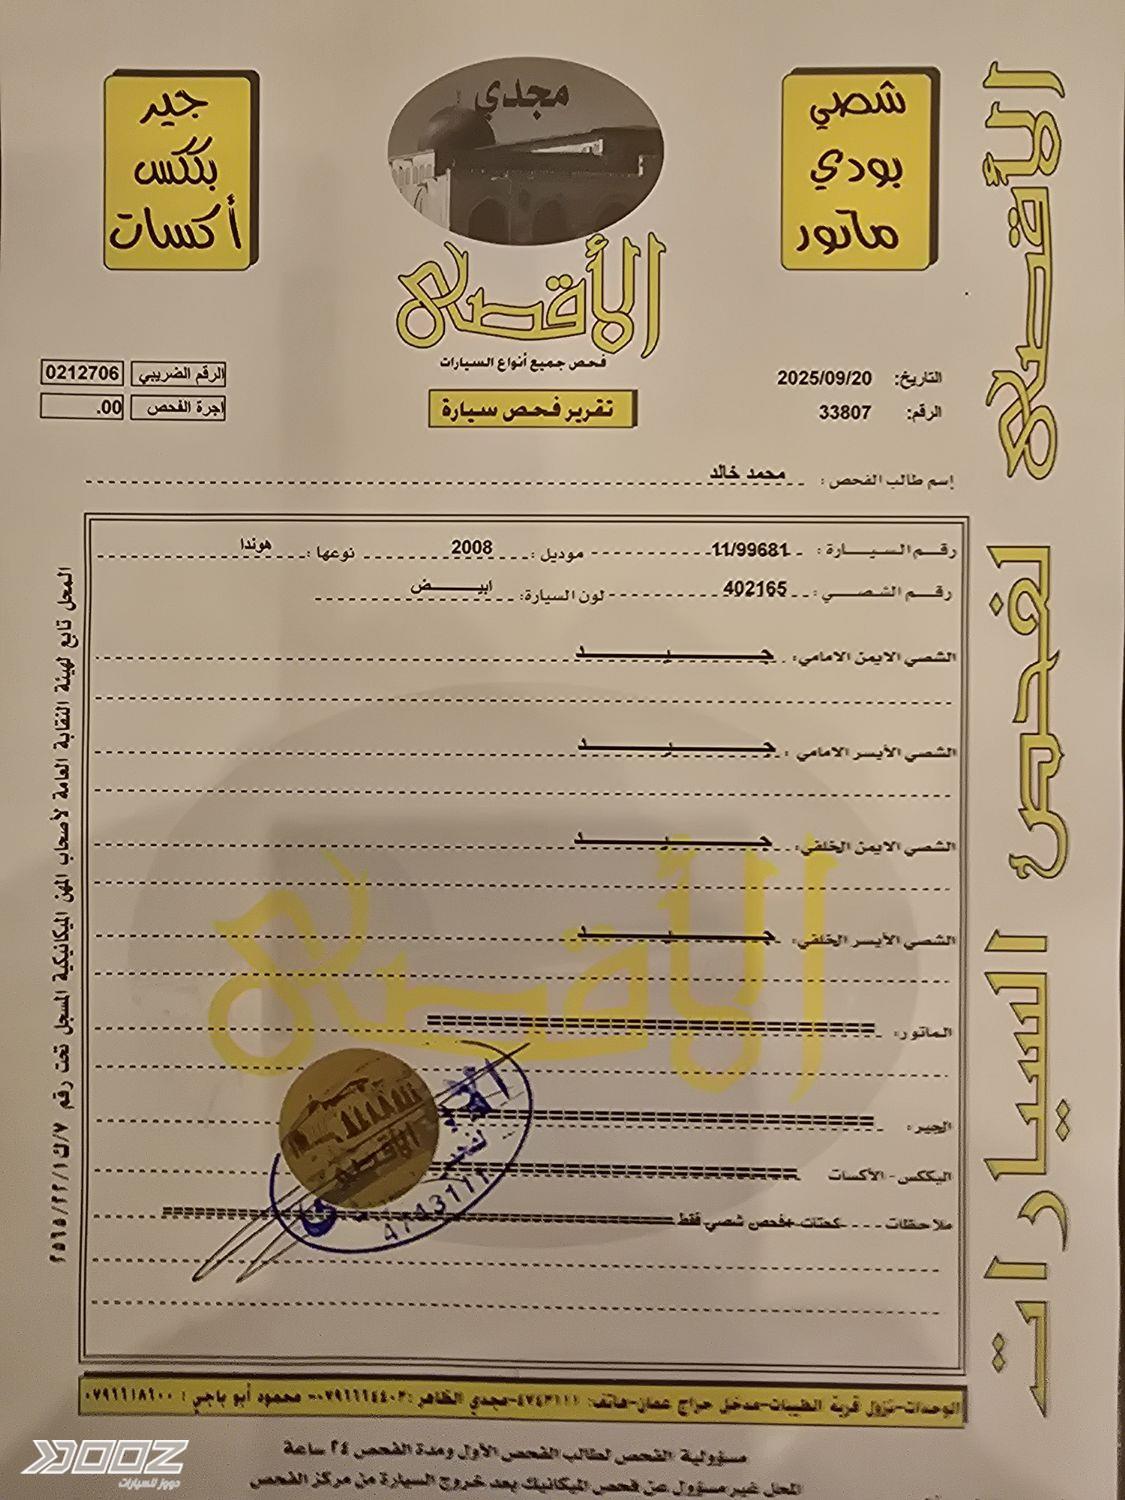 مجدي
شصي
بودي
ماتور
جير
بككس
أكسات
الأقصى
فحص جميع أنواع السيارات
تقرير فحص سيارة
التاريخ: 2025/09/20
الرقم: 33807
الرقم الضريبي 0212706
اجرة الفحص .00
إسم طالب الفحص: محمد خالد
رقم السيارة: 11/99681 موديل: 2008 نوعها: هوندا
رقم الشصي: 402165 لون السيارة: ابيض
الشصي الايمن الامامي: جرد
الشصي الأيسر الامامي: جرد
الشصي الايمن الخلفي: جرد
الشصي الأيسر الخلفي: جرد
الماتور:
الجير:
البككس - الأكسات
ملاحظات كحتات +فحص شصي فقط
الأقصى
الأقصى
4743111
الوحدات-نزول قرية الطيبات-مدخل حراج عمان-هاتف: ٤٧٤٣١١١-مجدي الظاهر: ٠٧٩٦٦١٤٤٠٣- محمود أبو باجي: ٠٧٩٦٦١٨٦٠٠
مسؤولية الفحص لطالب الفحص الأول ومدة الفحص ٢٤ ساعة
المحل غير مسؤول عن فحص الميكانيك بعد خروج السيارة من مركز الفحص
المحل تابع لهيئة النقابة العامة لأصحاب المهن الميكانيكية المسجل تحت رقم ٧/ك٢٢/١/٢٥٦٥
الأقصى لفحص السيارات
DOOZ
دووز للسيارات